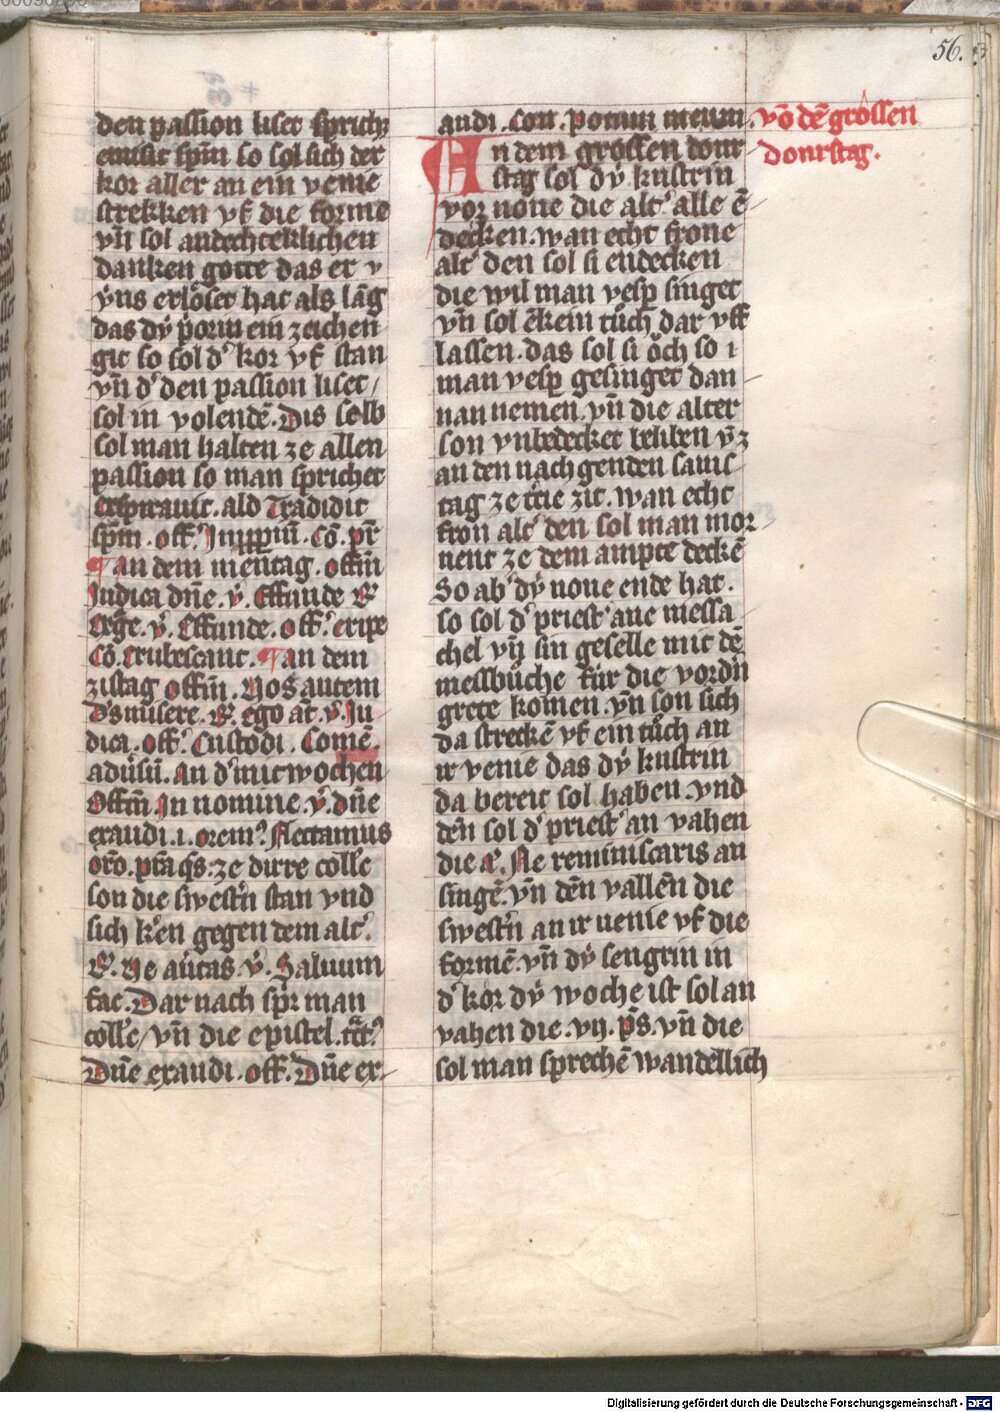 56.
den passion liset sprich
emisit spm̄ so sol sich der
kor aller an ein venie
strekken vf die forme
vn̄ sol andechteklichen
danken gotte das er v
v̈ns erlöset hat als lāg
das dÿ porm ein zeichen
git so sol d' kor vf stan
vn̄ d' den passion liset /
sol in volendē. Dis selb
sol man halten ze allen
passion so man sprichet
expiravit. ald Tradidit
spm̄. off. Impꝓiū. Cō. pr̄
¶ an dem mentag. offm̄
Judica dn̄e. v̇. Effunde ℞
Exg̅e. v̇. Effunde. off. eripe
Cō. Erubescant. ¶ an dem
zistag offm̄. Nos autem
d's mis̄ere. ℞. ego at̄. v̇. Ju
dica. off. Custodi. Comē.
adūsū. An d' mitwochen
Offm̄ In nomine v̇. dn̄e
exaudi. i. orem? Flectamus
orō. pr̄a qs̄: ze dirre colle
son die swest'n stan vnd
sich k'en gegen dem alt'.
℞. Ne au̇tas v̇. Saluum
fac. Dar nach spr̄ man
colle / vn̄ die epistel. tct'
Dn̄e exaudi. off. Dn̄e ex-
audi. Con. Potum meum.
An dem grossen donr
stag sol dÿ kustrin
vor none die alt' alle ē
decken. wan echt frone
alt' den sol si endecken
die wil man vesp̱ singet
vn̄ sol ēkein tu̇ch dar vff
lassen. das sol si öch so i
man vesp̱ gesinget dan
nan nemen. vn̄ die alter
son vnbedecket beliben v̄z
an den nachgenden sams
tag ze t'cie zit. wan echt
fron alt' den sol man mor
nent ze dem ampte deckē
So ab' dÿ none ende hat.
so sol d' priest' ane messa
chel vn̄ sin geselle mit dē
messbu̇che fu̇r die vord'n
grete komen. vn̄ son sich
da streckē vf ein tu̇ch an
ir venie das dÿ kustrin
da bereit sol haben. vnd
den̄ sol d' priest' an vahen
die a'. Ne reminiscaris an
singē. vn̄ den̄ vallen̄ die
swest'n an ir venie vf die
formē. vn̄ dÿ sengrin in
d' kor dÿ woche ist sol an
vahen die. vij. ps̄. vn̄ die
sol man sprechē wandellich
vō dē grossen
donrstag.
Digitalisierung gefördert durch die Deutsche Forschungsgemeinschaft - DFG